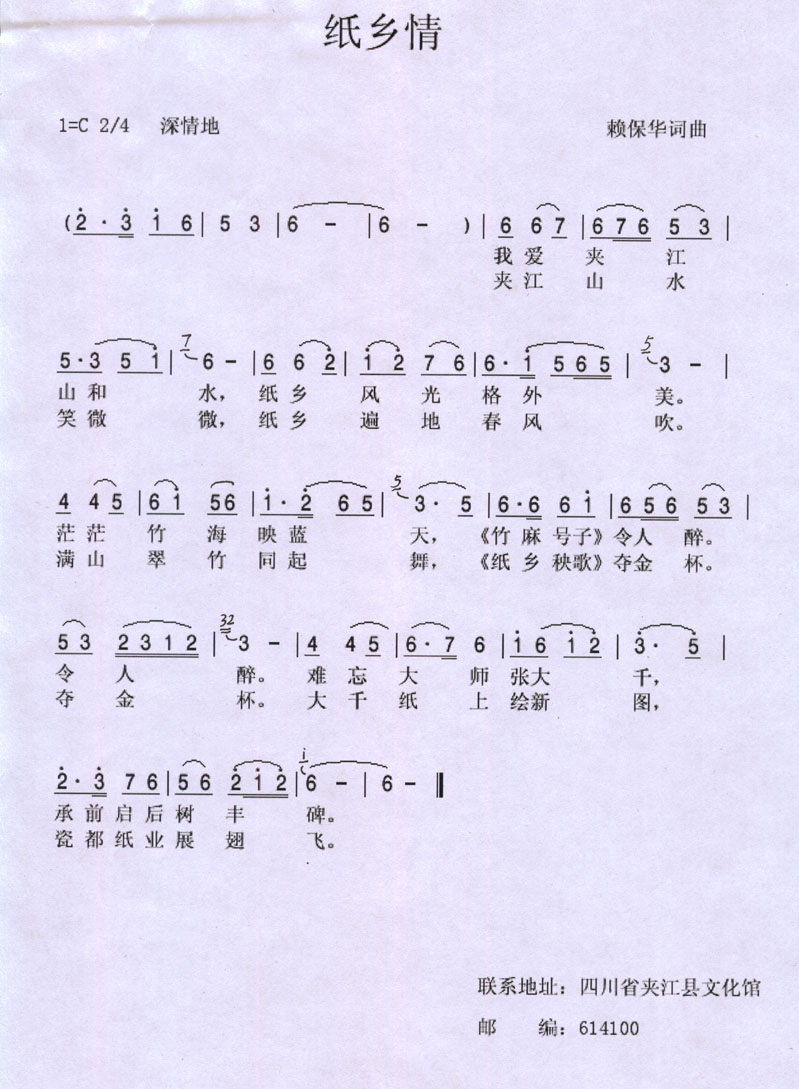 纸乡情
1=C 2/4 深情地 赖保华词曲
(2̇·3̇ 1̇6|53|6 - |6 - )|6 67|676 53|
我爱夹江
夹江山水
5·3 51̇|⁷6-|6 62̇|1̇2̇ 76|6·1̇ 565|⁵3-|
山和水，纸乡风光格外美。
笑微微，纸乡遍地春风吹。
4 45|61̇ 56|1̇·2̇ 65|⁵3·5|6·6 61̇|656 53|
茫茫竹海映蓝天，《竹麻号子》令人醉。
满山翠竹同起舞，《纸乡秧歌》夺金杯。
53 2312|³²3-|4 45|6·7 6|1̇6 1̇2̇|3̇·5̇|
令人醉。难忘大师张大千，
夺金杯。大千纸上绘新图，
2̇·3̇ 76|56 2̇1̇2̇|ⁱ6-|6-‖
承前启后树丰碑。
瓷都纸业展翅飞。
联系地址：四川省夹江县文化馆
邮 编：614100